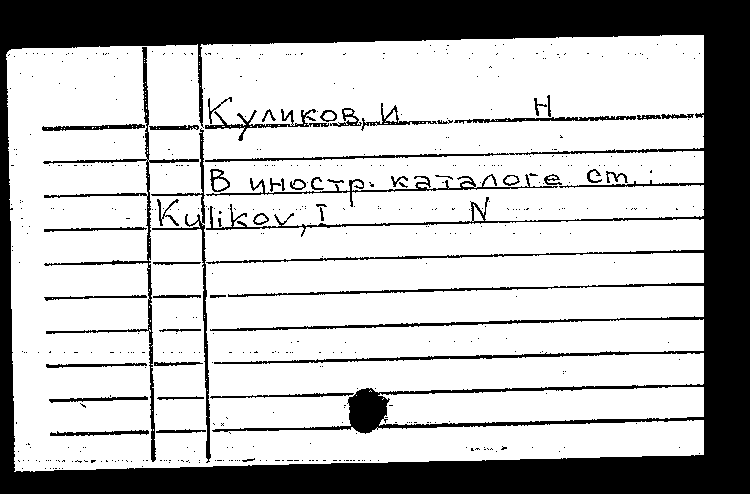 Куликов, И Н
В иностр. каталоге ст.:
Kulikov, I N